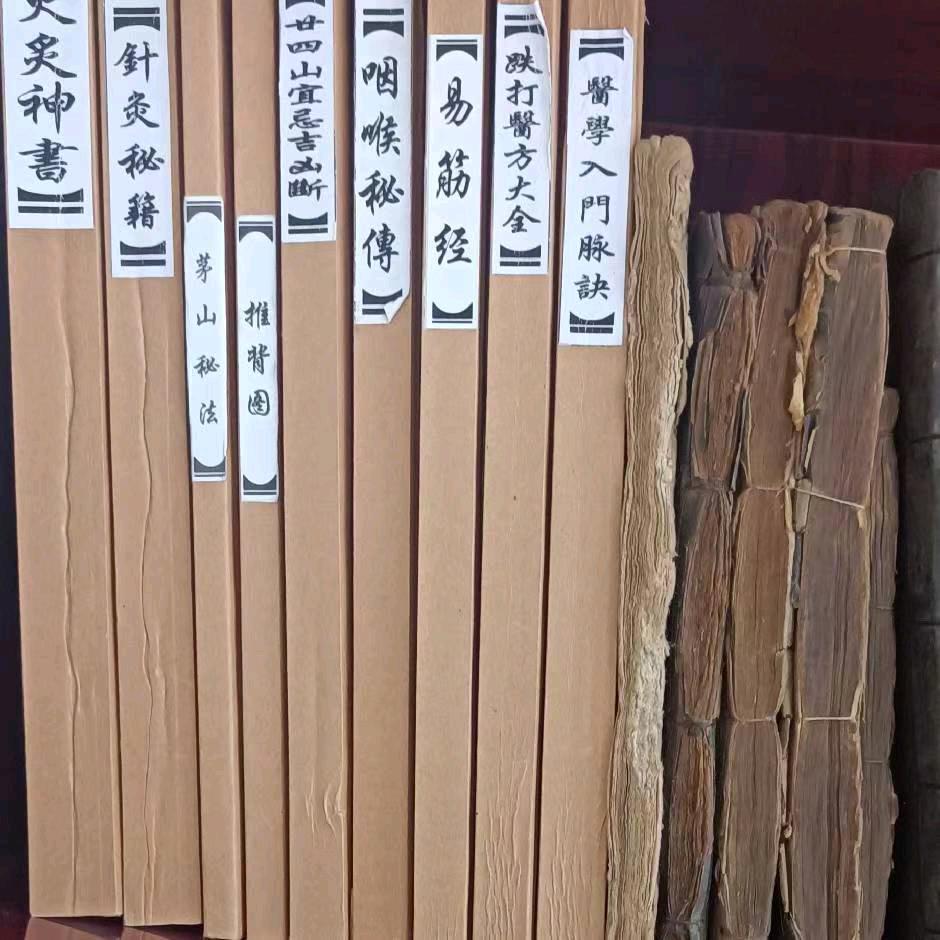 灸神書
針灸秘籍
茅山秘法
推背图
廿四山宜忌吉凶斷
咽喉秘傳
易筋经
跌打醫方大全
醫學入門脉訣